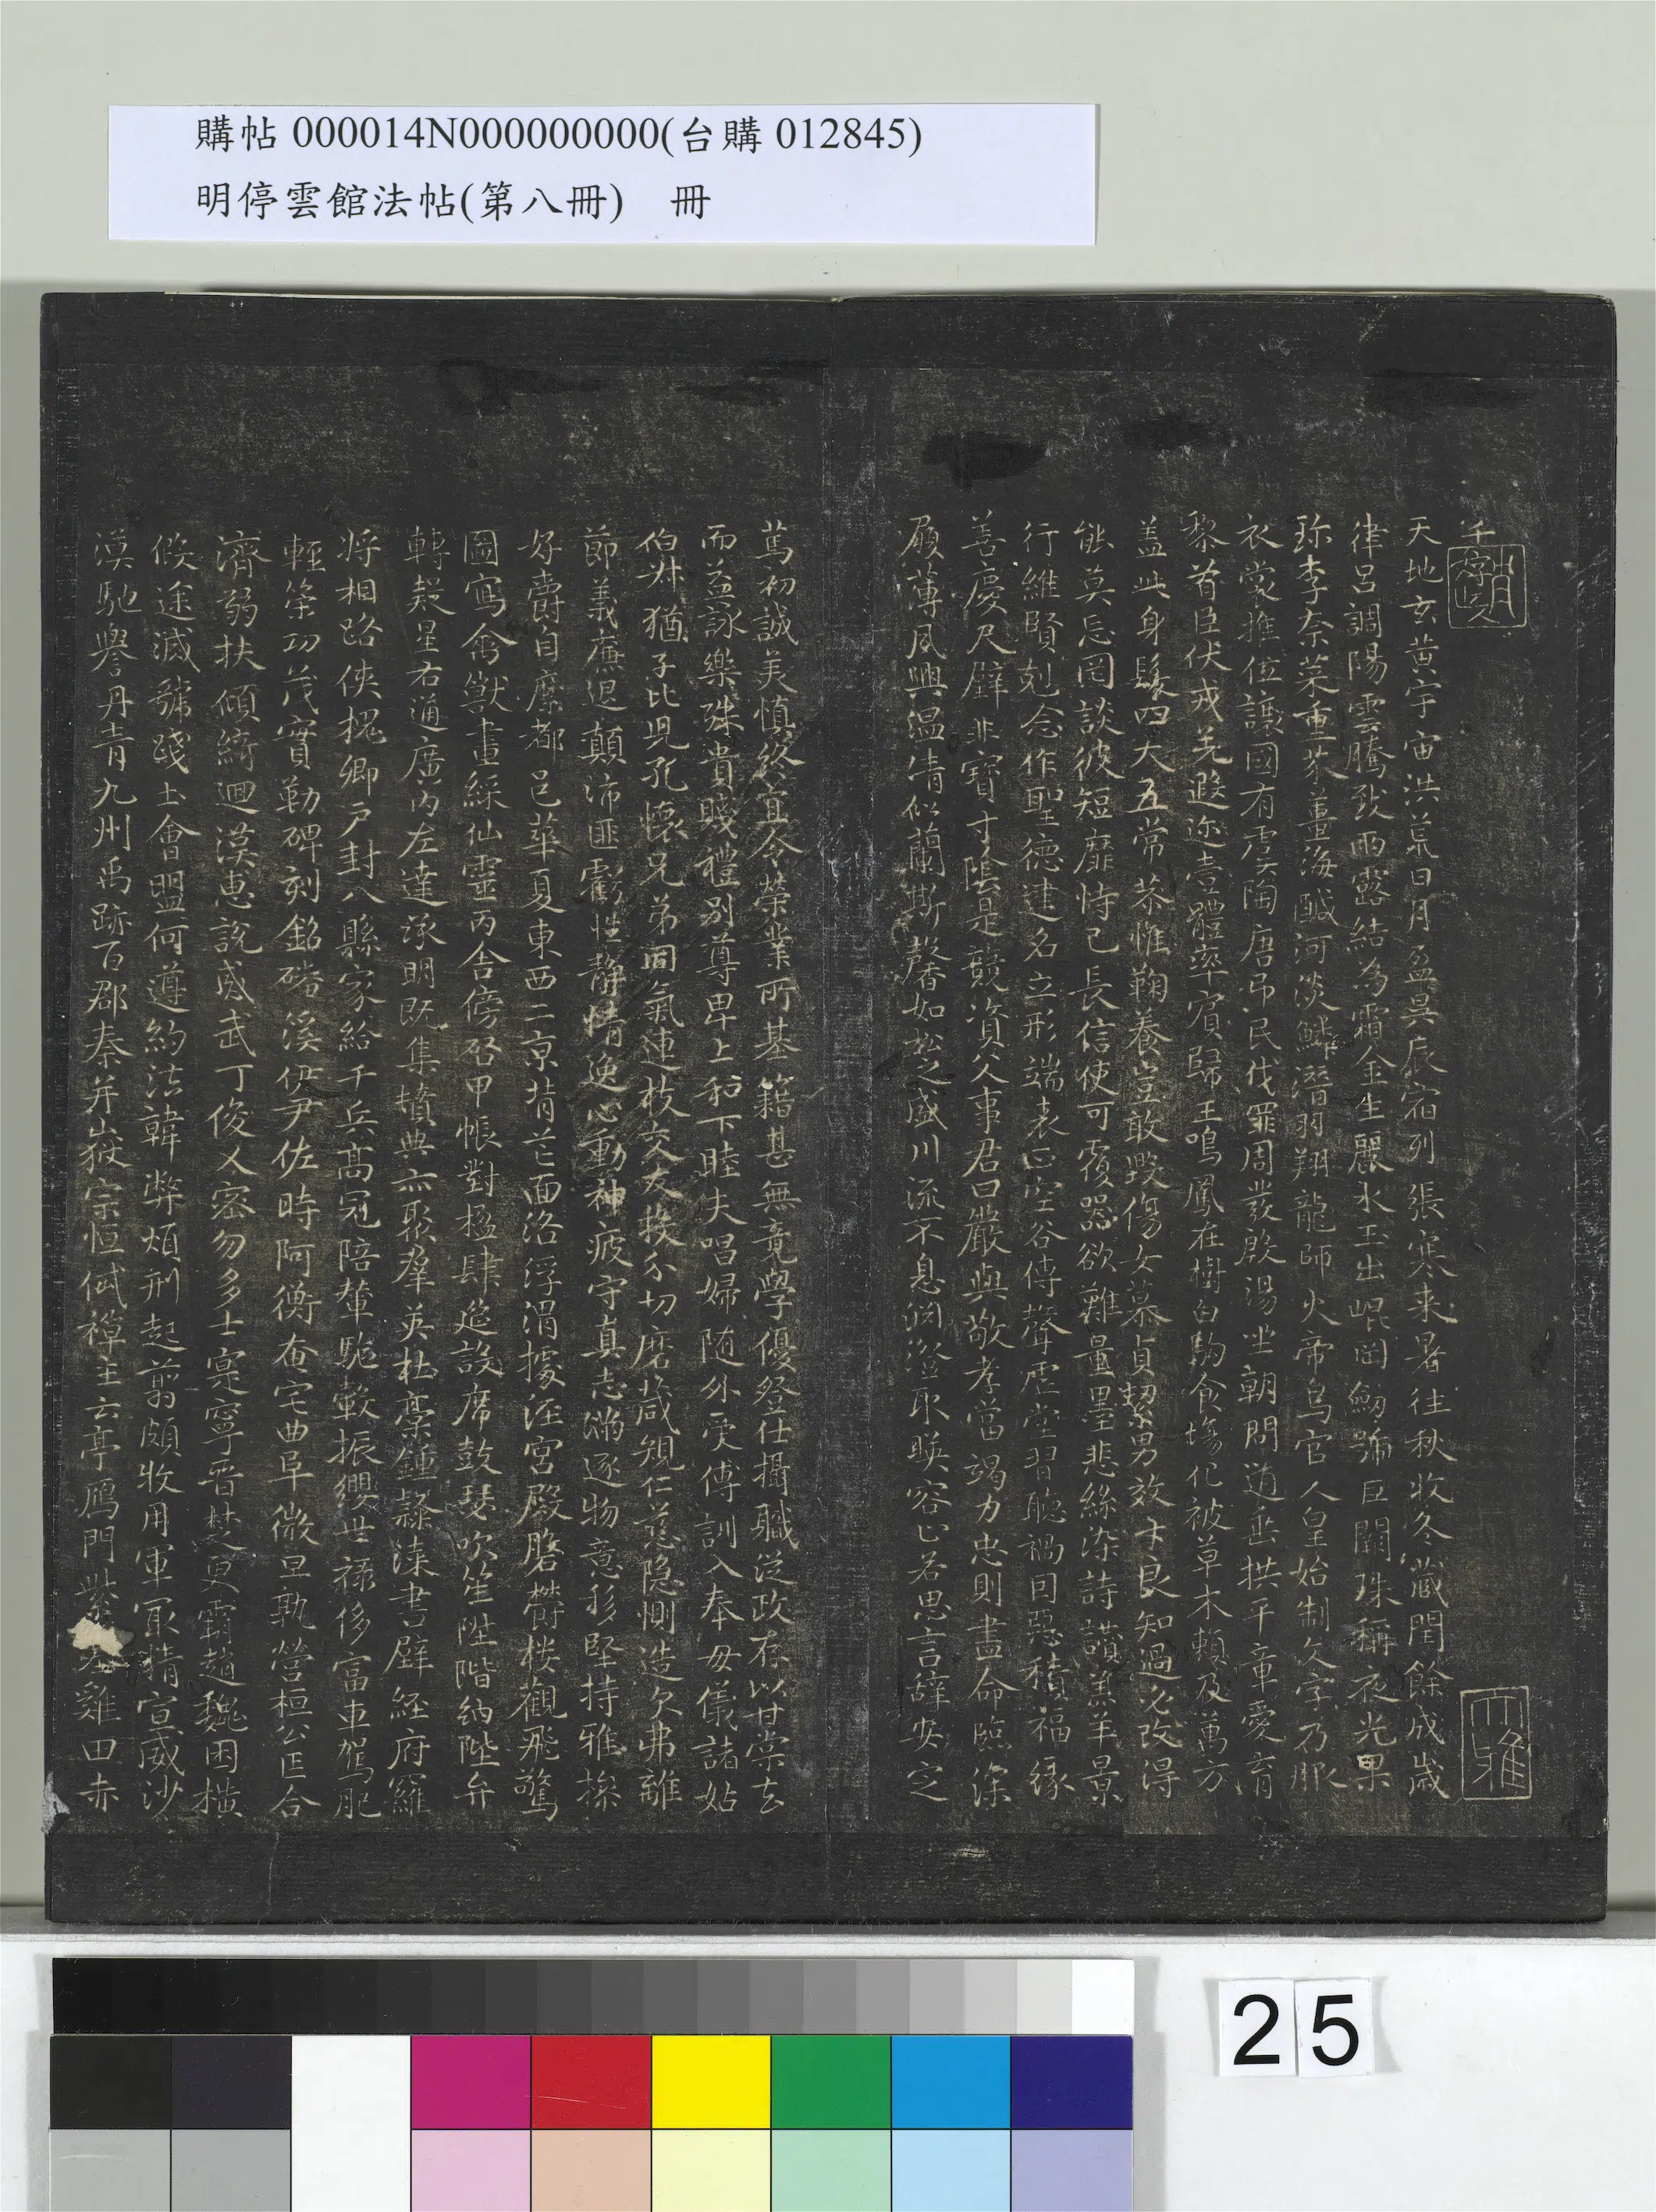 購帖 000014N000000000(台購 012845)
明停雲館法帖(第八冊) 冊
千字文
天地玄黃宇宙洪荒日月盈昃辰宿列張寒来暑往秋收冬藏閏餘成歲
律呂調陽雲騰致雨露結為霜金生麗水玉出崐岡劒號巨闕珠稱夜光果
珎李柰菜重芥薑海鹹河淡鱗潛羽翔龍師火帝鳥官人皇始制文字乃服
衣裳推位讓國有虞陶唐弔民伐罪周發殷湯坐朝問道垂拱平章愛育
黎首臣伏戎羌遐迩壹體率賓歸王鳴鳳在樹白駒食場化被草木賴及萬方
盖此身髮四大五常恭惟鞠養豈敢毀傷女慕貞絜男效才良知過必改得
能莫忘罔談彼短靡恃己長信使可覆器欲難量墨悲絲染詩讚羔羊景
行維賢剋念作聖德建名立形端表正空谷傳聲虛堂習聽禍因惡積福緣
善慶尺璧非寶寸陰是競資父事君曰嚴與敬孝當竭力忠則盡命臨深
履薄夙興溫凊似蘭斯馨如松之盛川流不息淵澄取暎容止若思言辭安定
篤初誠美慎終宜令榮業所基籍甚無竟學優登仕攝職從政存以甘棠去
而益詠樂殊貴賤禮別尊卑上和下睦夫唱婦隨外受傅訓入奉母儀諸姑
伯叔猶子比兒孔懷兄弟同氣連枝交友投分切磨箴規仁慈隱惻造次弗離
節義廉退顛沛匪虧性靜情逸心動神疲守真志滿逐物意移堅持雅操
好爵自縻都邑華夏東西二京背芒面洛浮渭據涇宮殿盤欝楼觀飛驚
圖寫禽獸畫綵仙靈丙舍傍啓甲帳對楹肆筵設席鼓瑟吹笙陞階納陛弁
轉疑星右通廣內左達承明既集墳典亦聚羣英杜稾鍾隸漆書壁経府羅
将相路俠槐卿戶封八縣家給千兵高冠陪輦驅轂振纓世祿侈富車駕肥
輕策功茂實勒碑刻銘磻溪伊尹佐時阿衡奄宅曲阜微旦孰營桓公匡合
濟弱扶傾綺迴漢惠說感武丁俊乂密勿多士寔寧晉楚更霸趙魏困橫
假途滅虢踐土會盟何遵約法韓弊煩刑起翦頗牧用軍冣精宣威沙
漠馳譽丹青九州禹跡百郡秦并嶽宗恒岱禪主云亭鴈門紫雞田赤
25